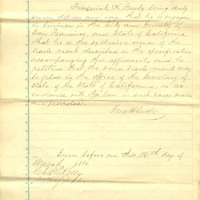 Frederick H. Busby being duly
sworn deposes and says that he is engaged
in business in the City and County of
San Francisco, and State of California
that he is the exclusive owner of the
trade mark described in the specification
accompanying this affidavit, and he
petition that the said trade mark may
be filed in the office of the Secretary of
State of the State of California, in ac
cordance with the law in such cases made
and provided.
Sworn before me this 18th day of
March